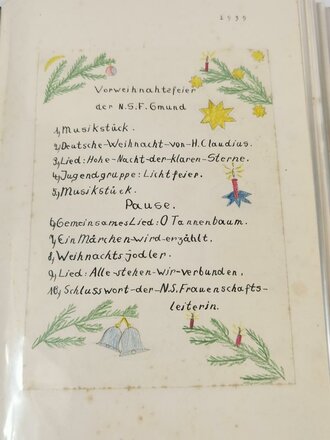 1939
Vorweihnachtsfeier
der N.S.F. Gmund
1) Musikstück.
2) Deutsche-Weihnacht-von-H. Claudius.
3) Lied: Hohe-Nacht-der-klaren-Sterne.
4) Jugendgruppe: Lichtfeier.
5) Musikstück.
Pause.
6) Gemeinsames Lied: O Tannenbaum.
7) Ein Märchen-wird-erzählt.
8) Weihnachtsjodler.
9) Lied: Alle-stehen-wir-verbunden.
10) Schlusswort-der-N.S. Frauenschafts-
leiterin.